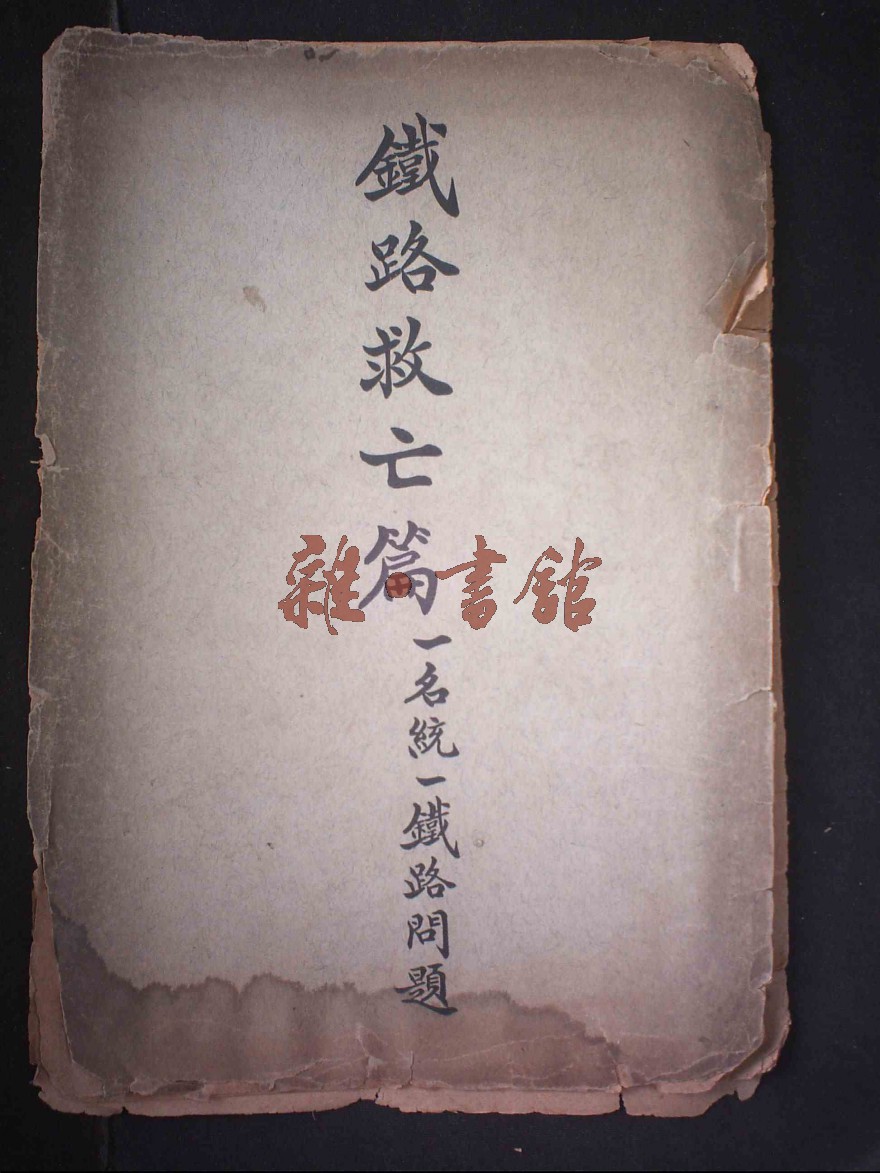 鐵路救亡篇
一名統一鐵路問題
雜書館